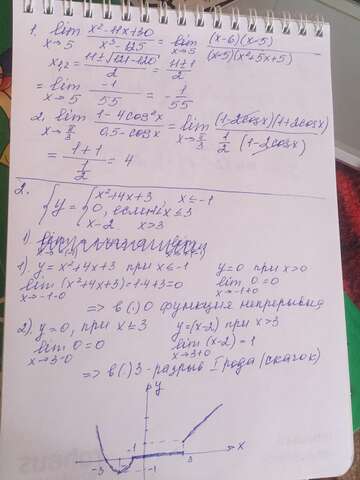 1. lim x→5 x²-11x+30 / x³-125 = lim x→5 (x-6)(x-5) / (x-5)(x²+5x+5)
x₁,₂ = 11±√121-120 / 2 = 11±1 / 2
= lim x→5 -1 / 55 = -1/55
2. lim x→π/3 1-4cos²x / 0,5-cosx = lim x→π/3 (1-2cosx)(1+2cosx) / 1/2 (1-2cosx)
= 1+1 / 1/2 = 4
2.
{ y = { x²+4x+3 x≤-1
0, если x≤3
x-2 x>3
1) y = x²+4x+3 при x≤-1 y=0 при x>0
lim x→-1-0 (x²+4x+3)=1-4+3=0 lim x→-1+0 0=0
=> в(.)0 функция непрерывна
2) y=0, при x≤3 y=(x-2) при x>3
lim x→3-0 0=0 lim x→3+0 (x-2)=1
=> в(.)3-разрыв I рода (скачок)
y
x
-3 -1 3